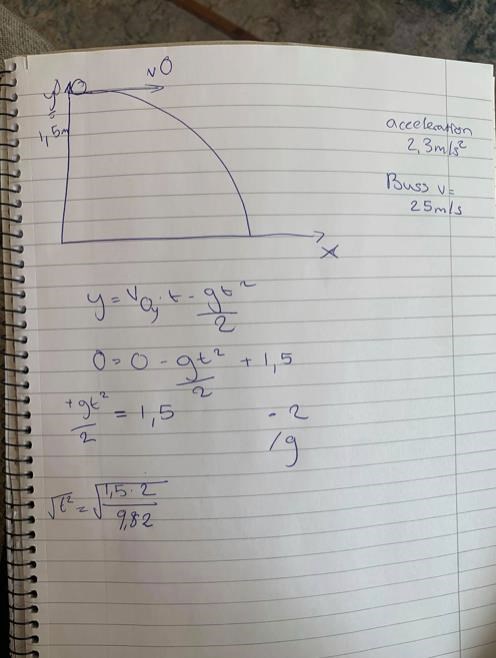 v0
y
=
1,5m
x
acceleration
2,3m/s²
Buss v=
25m/s
y = v₀y · t - gt²/2
0 = 0 - gt²/2 + 1,5
+gt²/2 = 1,5 · 2
/g
√t² = √1,5·2/9,82